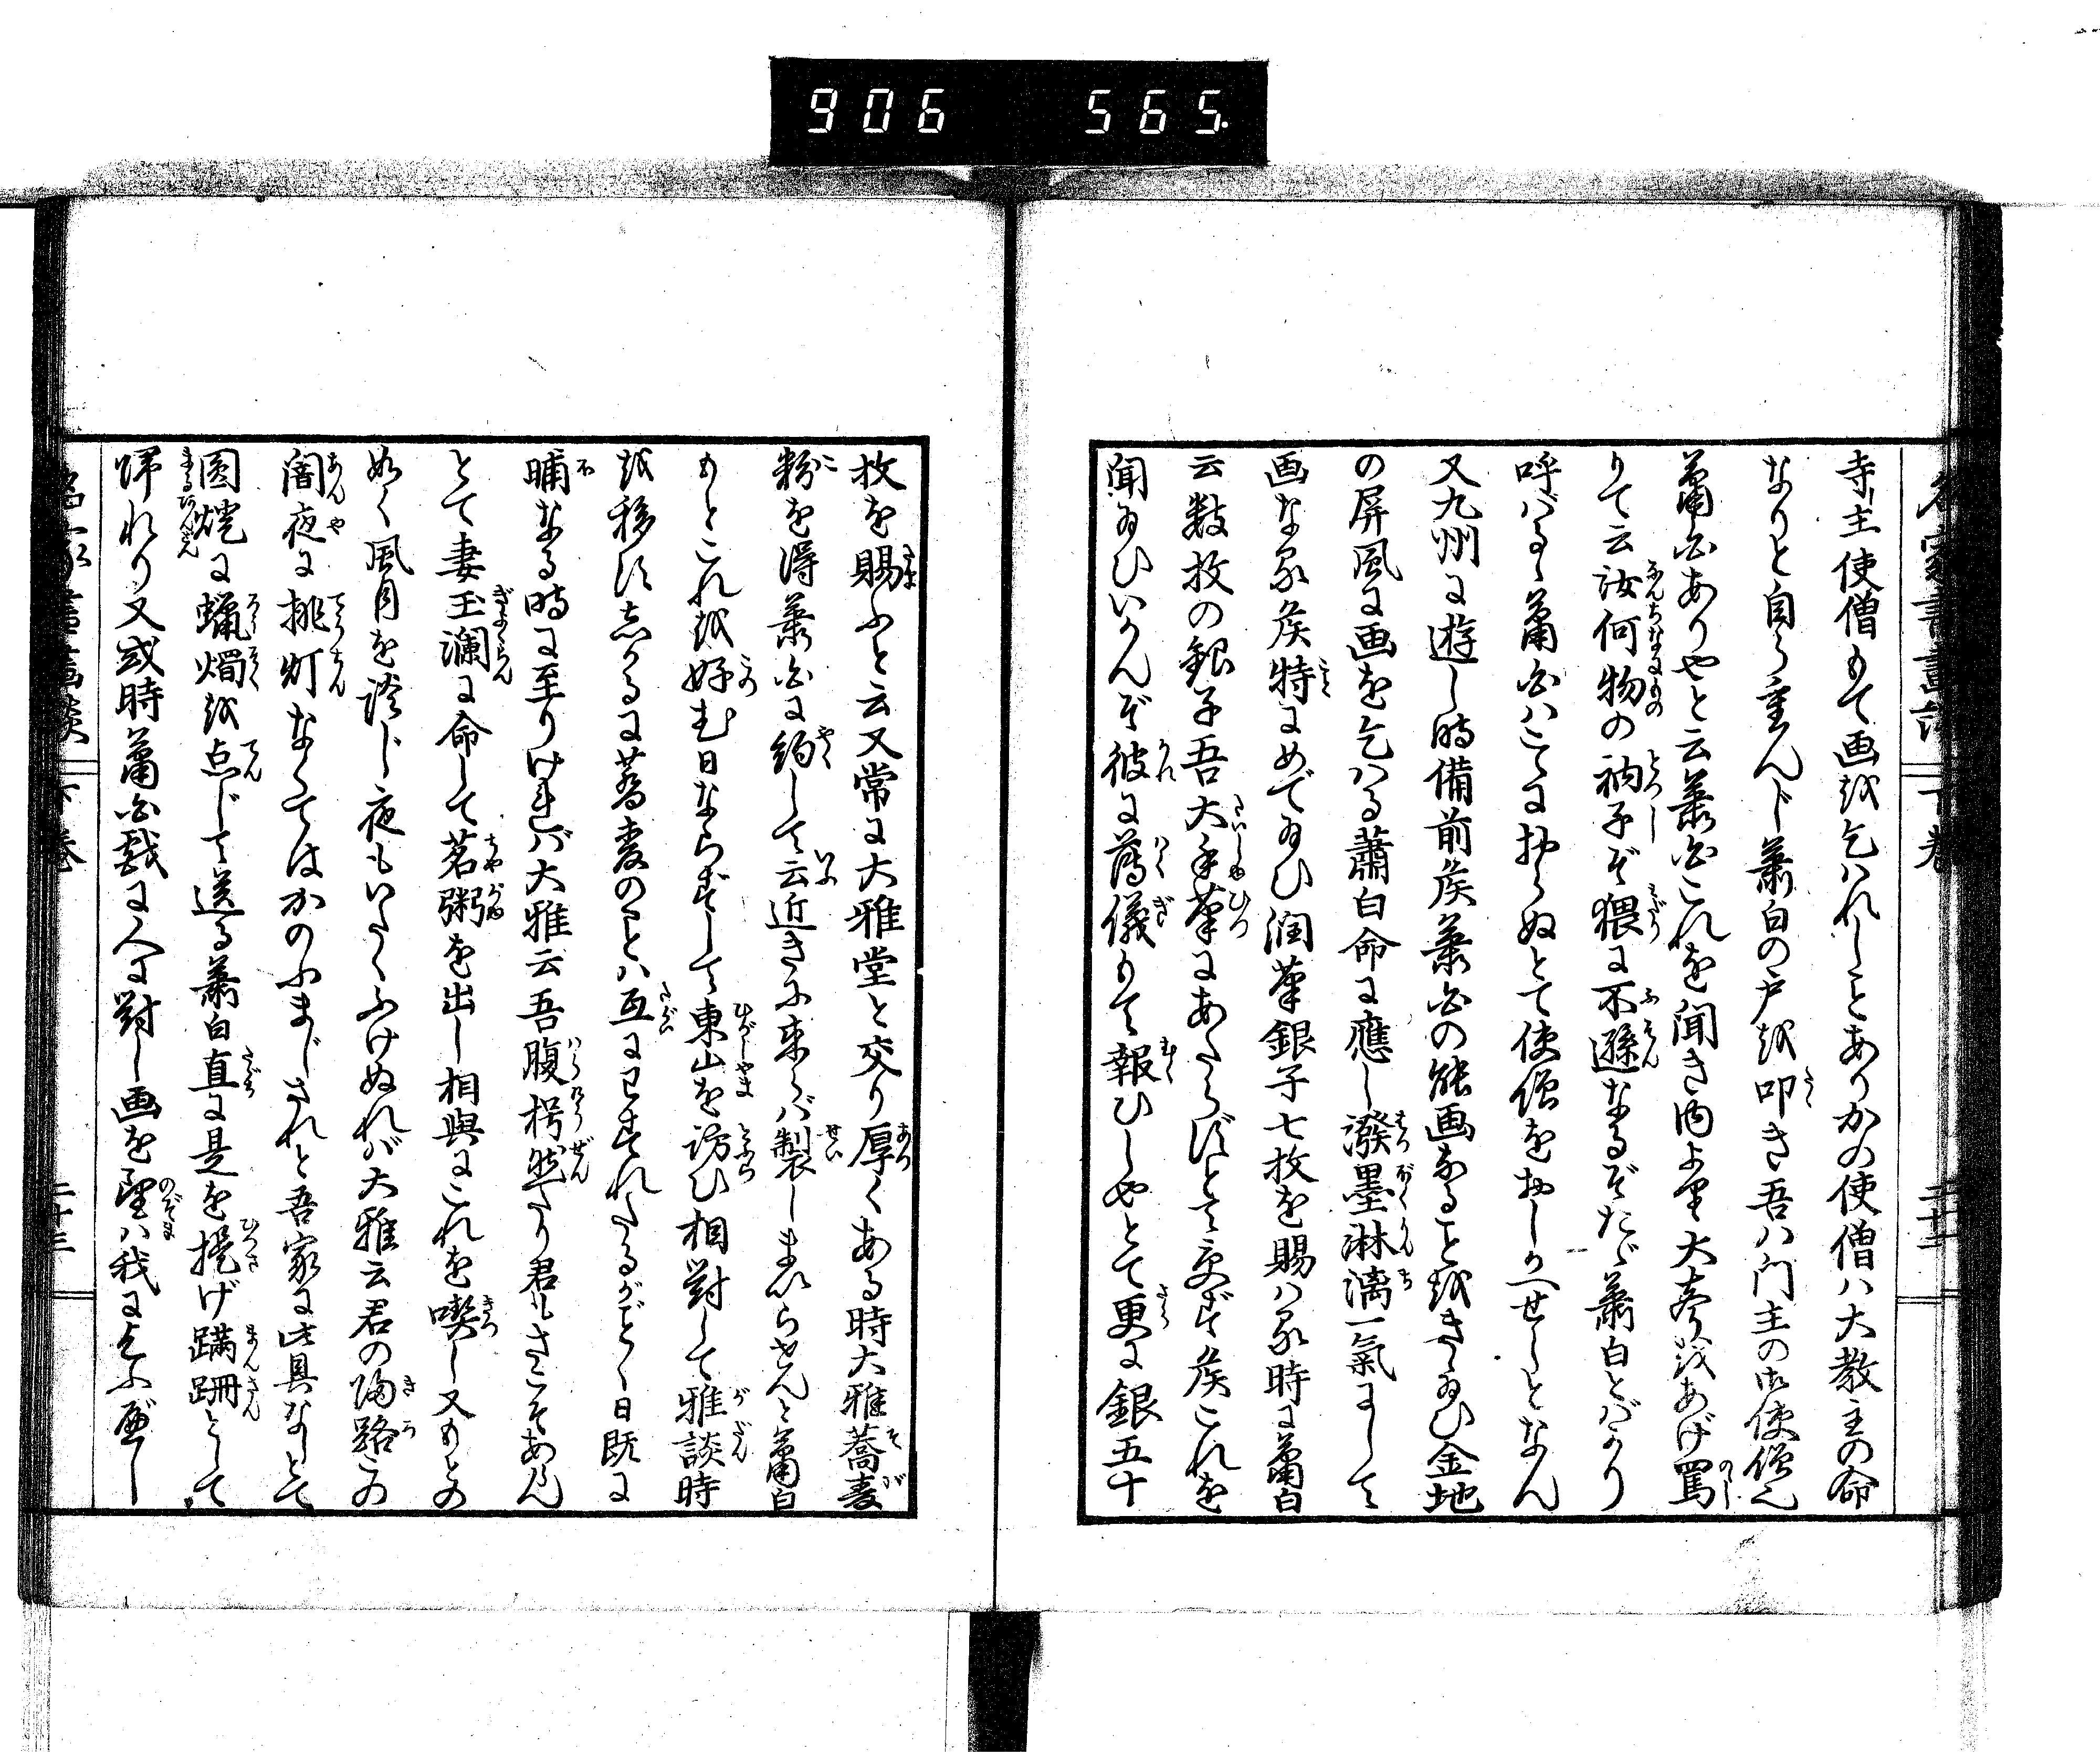 906 565
名家書畫談 下卷 二十二
寺主使僧もて画を乞はれしことありかの使僧は大教主の命
なりと自ら重んじ蕭白の戸を叩き吾は門主の御使僧也
蕭白ありやと云蕭白これを聞き内より大声をあげ罵
りて云汝何物の衲子ぞ猥に不遜なるぞたゞ蕭白とばかり
呼ばるゝ蕭白はこゝにおらぬとて使僧をおしかへせしとなん
又九州に遊し時備前矦蕭白の能画なることをきゝ給ひ金地
の屏風に画を乞はる蕭白命に應し潑墨淋漓一氣にして
画なる矦特にめで給ひ潤筆銀子七枚を賜はる時に蕭白
云数枚の銀子吾大手筆にあたらずとて受ず矦これを
聞給ひいかんぞ彼に薄儀もて報ひしやとて更に銀五十
枚を賜ふと云又常に大雅堂と交り厚くある時大雅蕎麦
粉を得蕭白に約して云近きに来らば製しまゐらせんと蕭白
もとこれを好む日ならずして東山を訪ひ相對して雅談時
を移すしかるに蕎麦のことは互にわすれたるがごとく日既に
晡なる時に至りければ大雅云吾腹枵然たり君もさこそあらん
とて妻玉瀾に命して茗粥を出し相與にこれを喫し又もとの
如く風月を談じ夜もいたくふけぬれば大雅云君の帰路この
闇夜に挑灯なくてはかのふまじされと吾家に此具なしとて
圓燈に蠟燭を点じて送る蕭白直に是を提げ蹣跚として
帰れり又或時蕭白戯に人に對し画を望は我に乞ふべし
名家書畫談 下卷 二十三